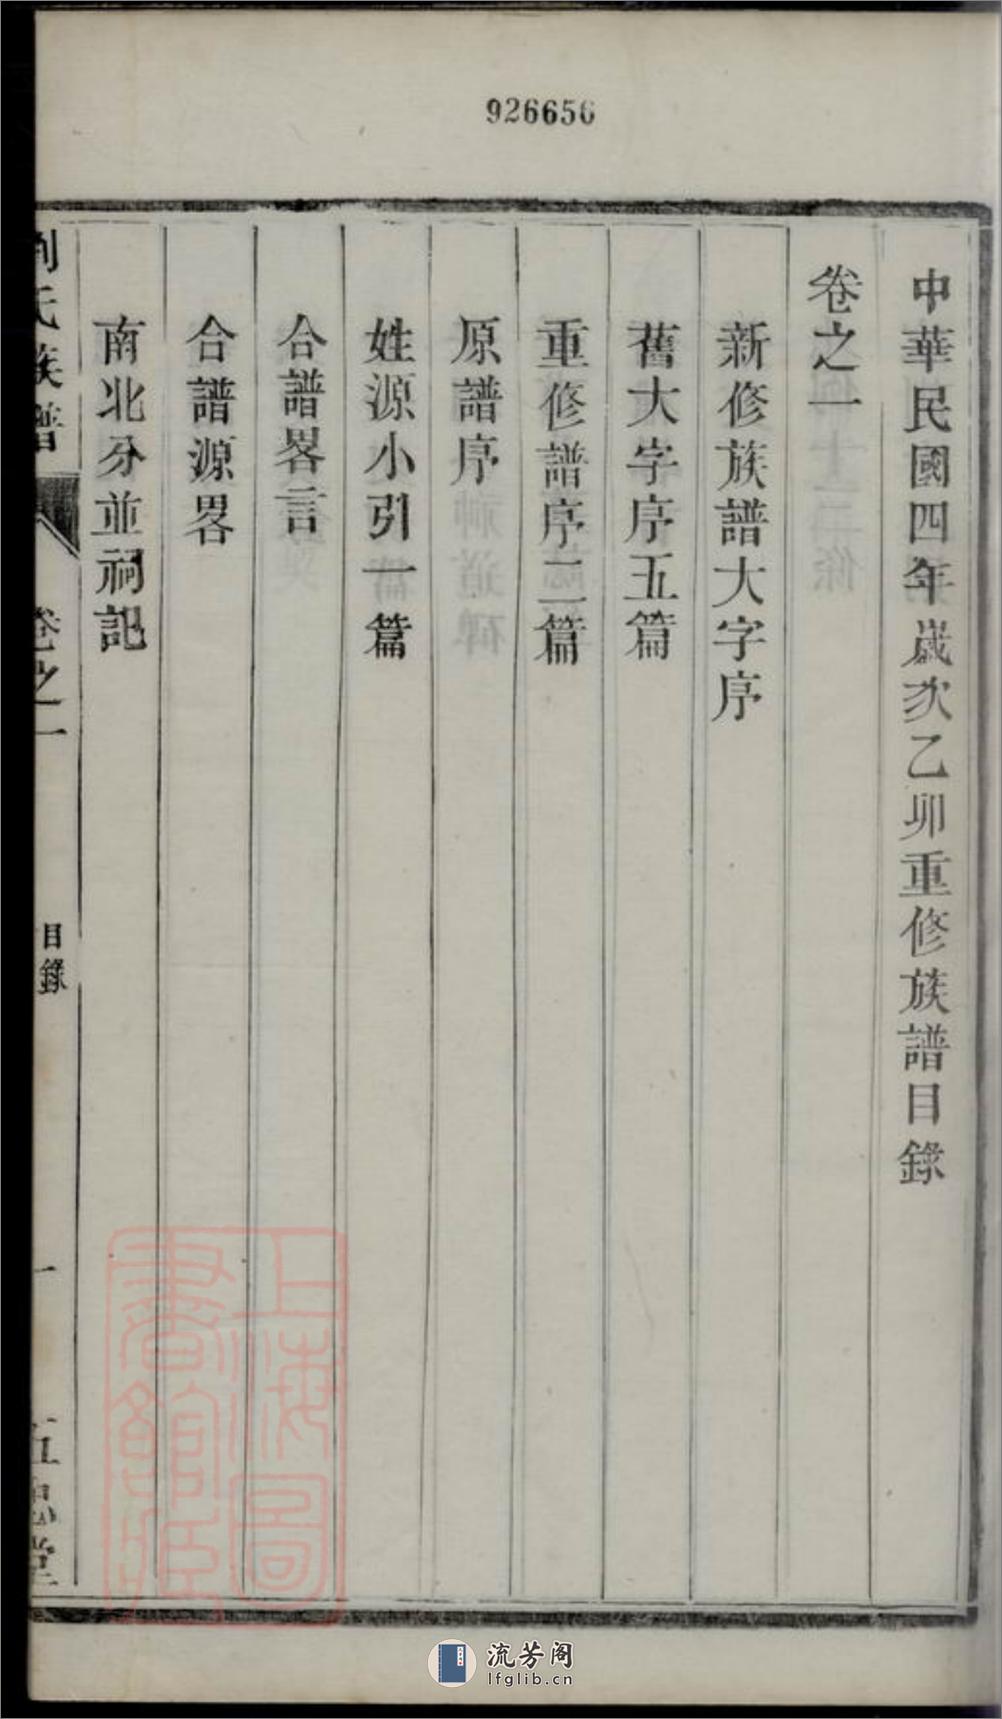 926656
中華民國四年歲次乙卯重修族譜目錄
卷之一
新修族譜大字序
舊大字序五篇
重修譜序二篇
原譜序
姓源小引一篇
合譜畧言
合譜源畧
南北分並祠記
劉氏族譜 卷之一 目錄 一 五忠堂
上海圖書館藏
流芳阁
lfglib.cn